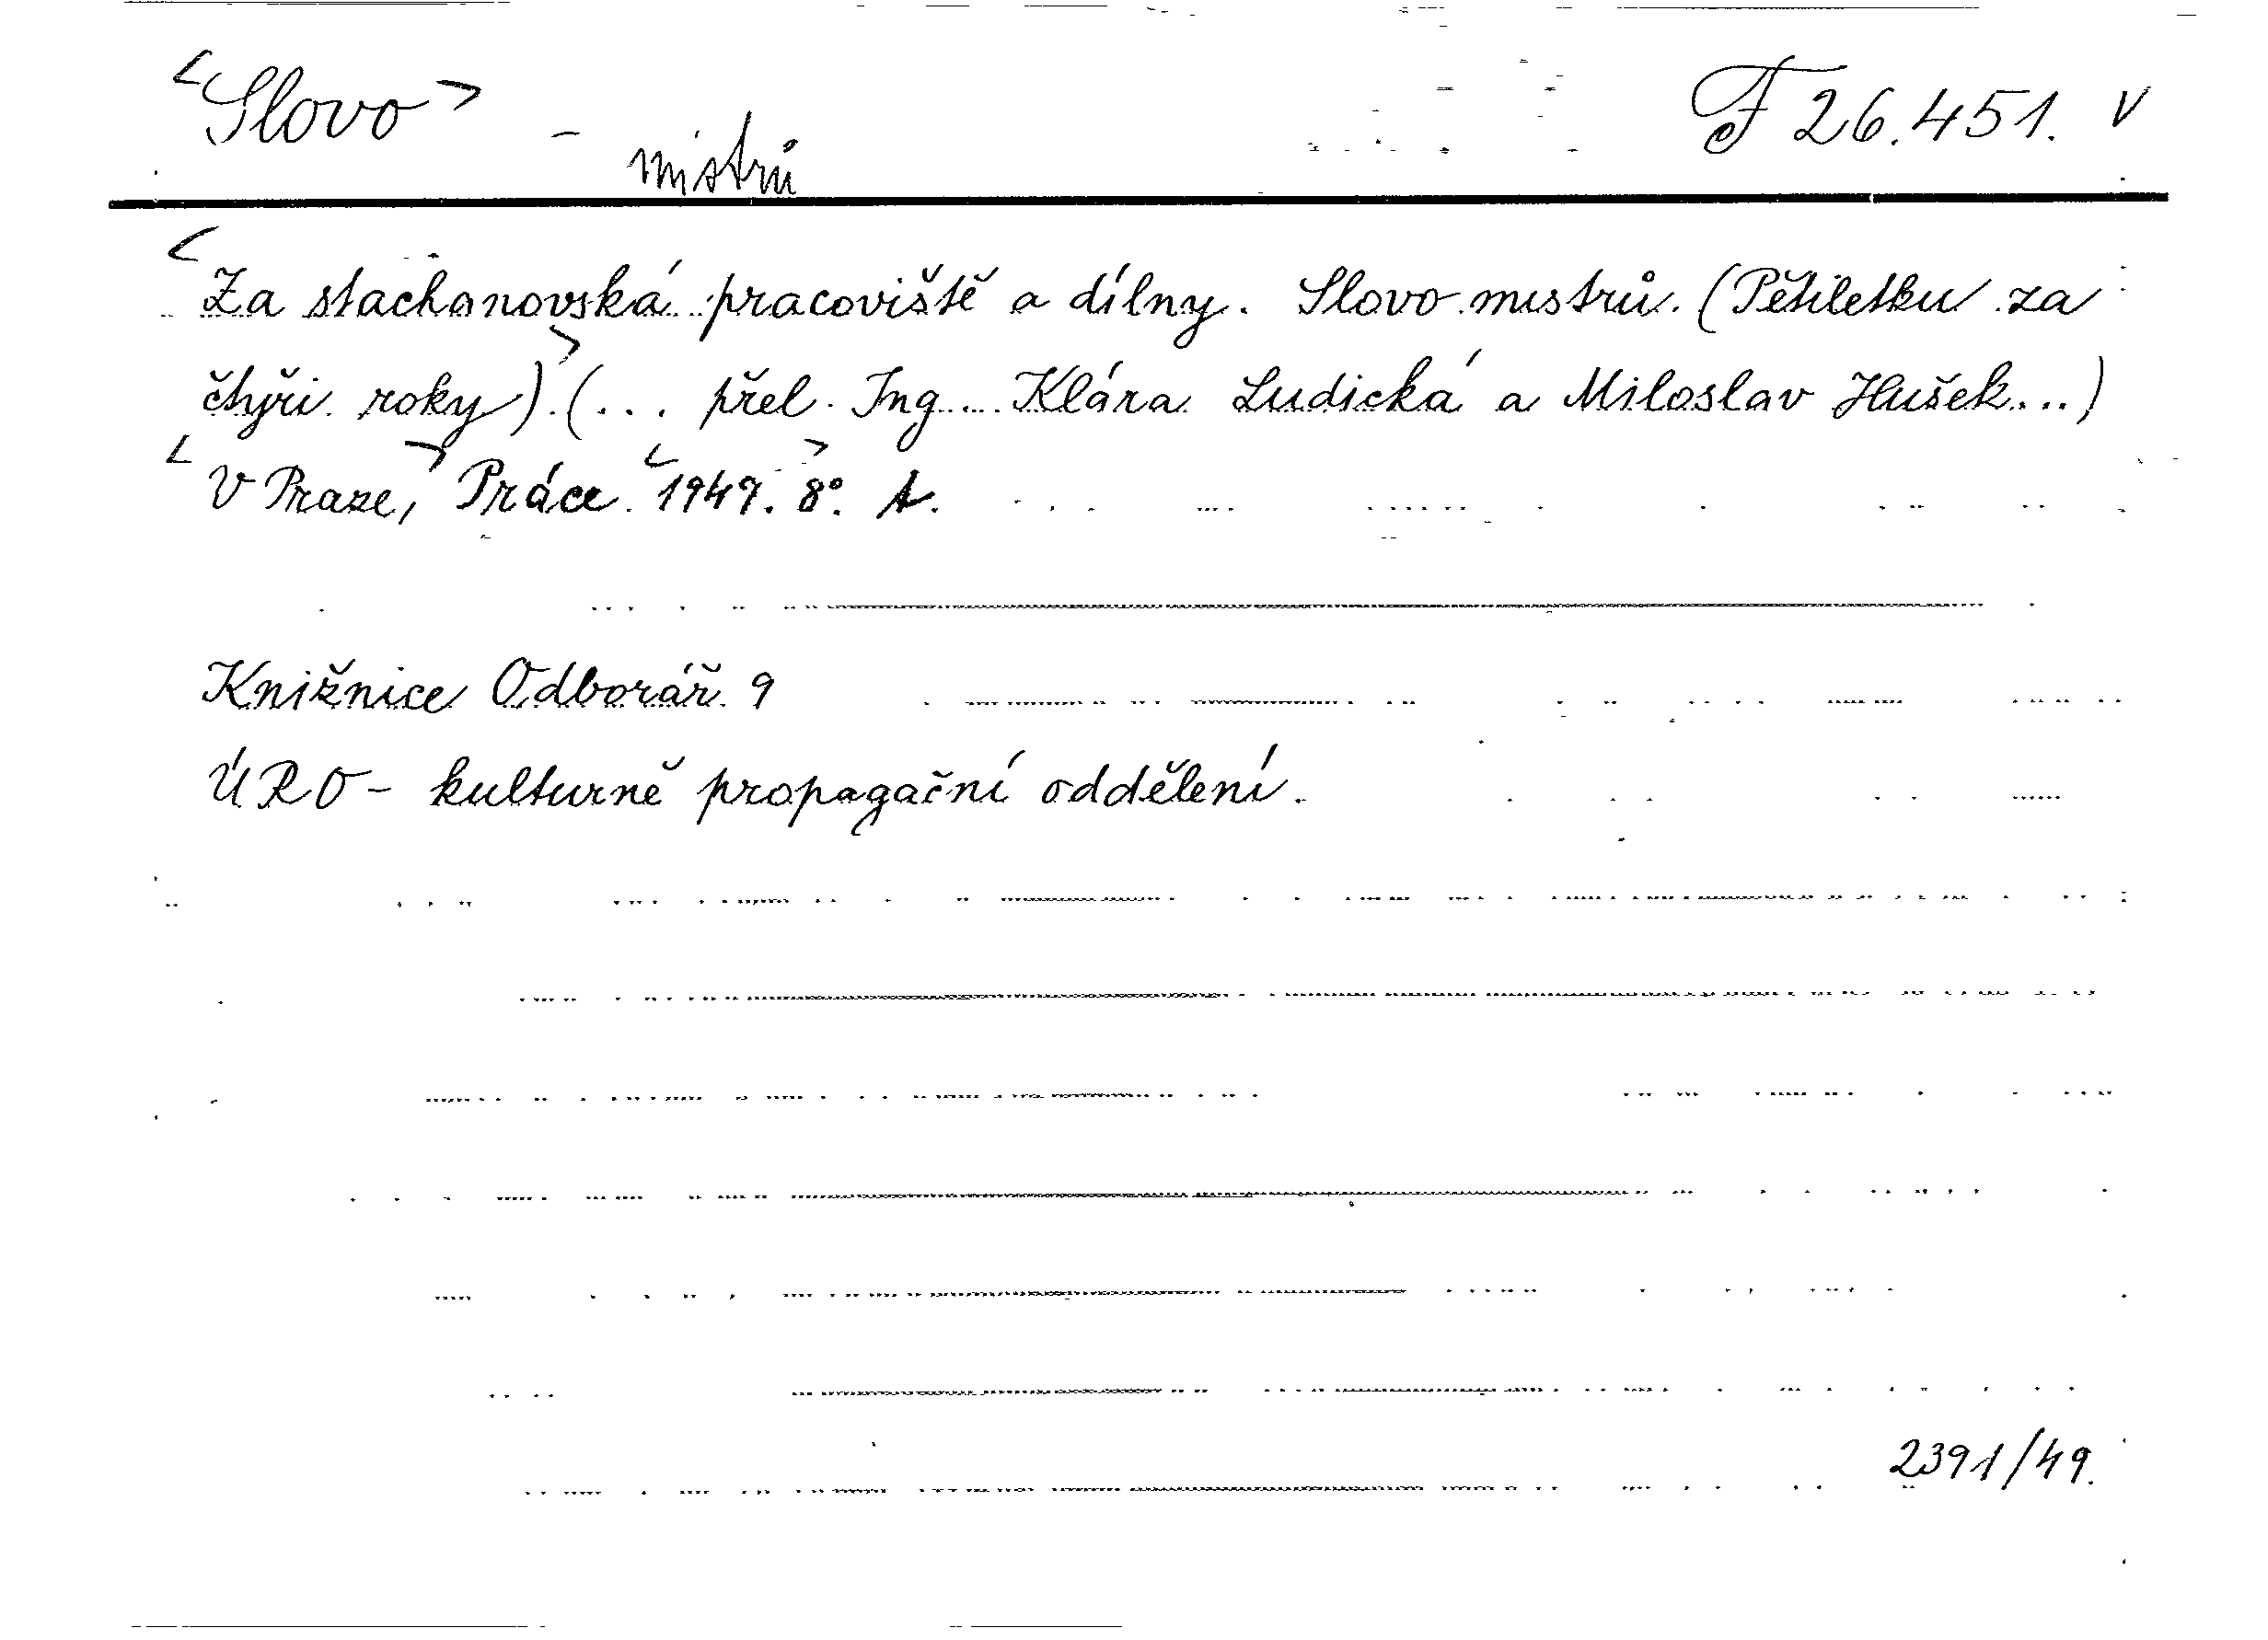 <Slovo> - mistrů F 26.451. v
<Za stachanovská pracoviště a dílny. Slovo mistrů. (Pětiletku za
čtyři roky)>. (... přel. Ing. ... Klára Ludická a Miloslav Hušek...)
<V Praze,> Práce. <1949. 8°.> A.
Knižnice Odborář. 9
ÚRO - kulturně propagační oddělení.
2391/49.